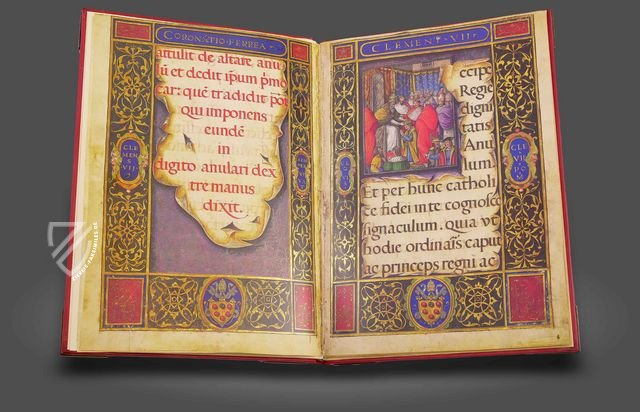 CORONATIO FERREA
attulit de altare anu
lũ et dedit ipum p̃mo
car: quẽ tradidit põt
qui imponens
eundẽ
in
digito anulari dex
tre manus
dixit.
CLE
MEN
S
VII
CLEMENT VII
ccipe
Regie
digni
tatis
Anu
lum
Et per hunc catholi
ce fidei in te cognosce
signaculum. quia vt
hodie ordinaris caput
ac princeps regni ac
CLE
VII